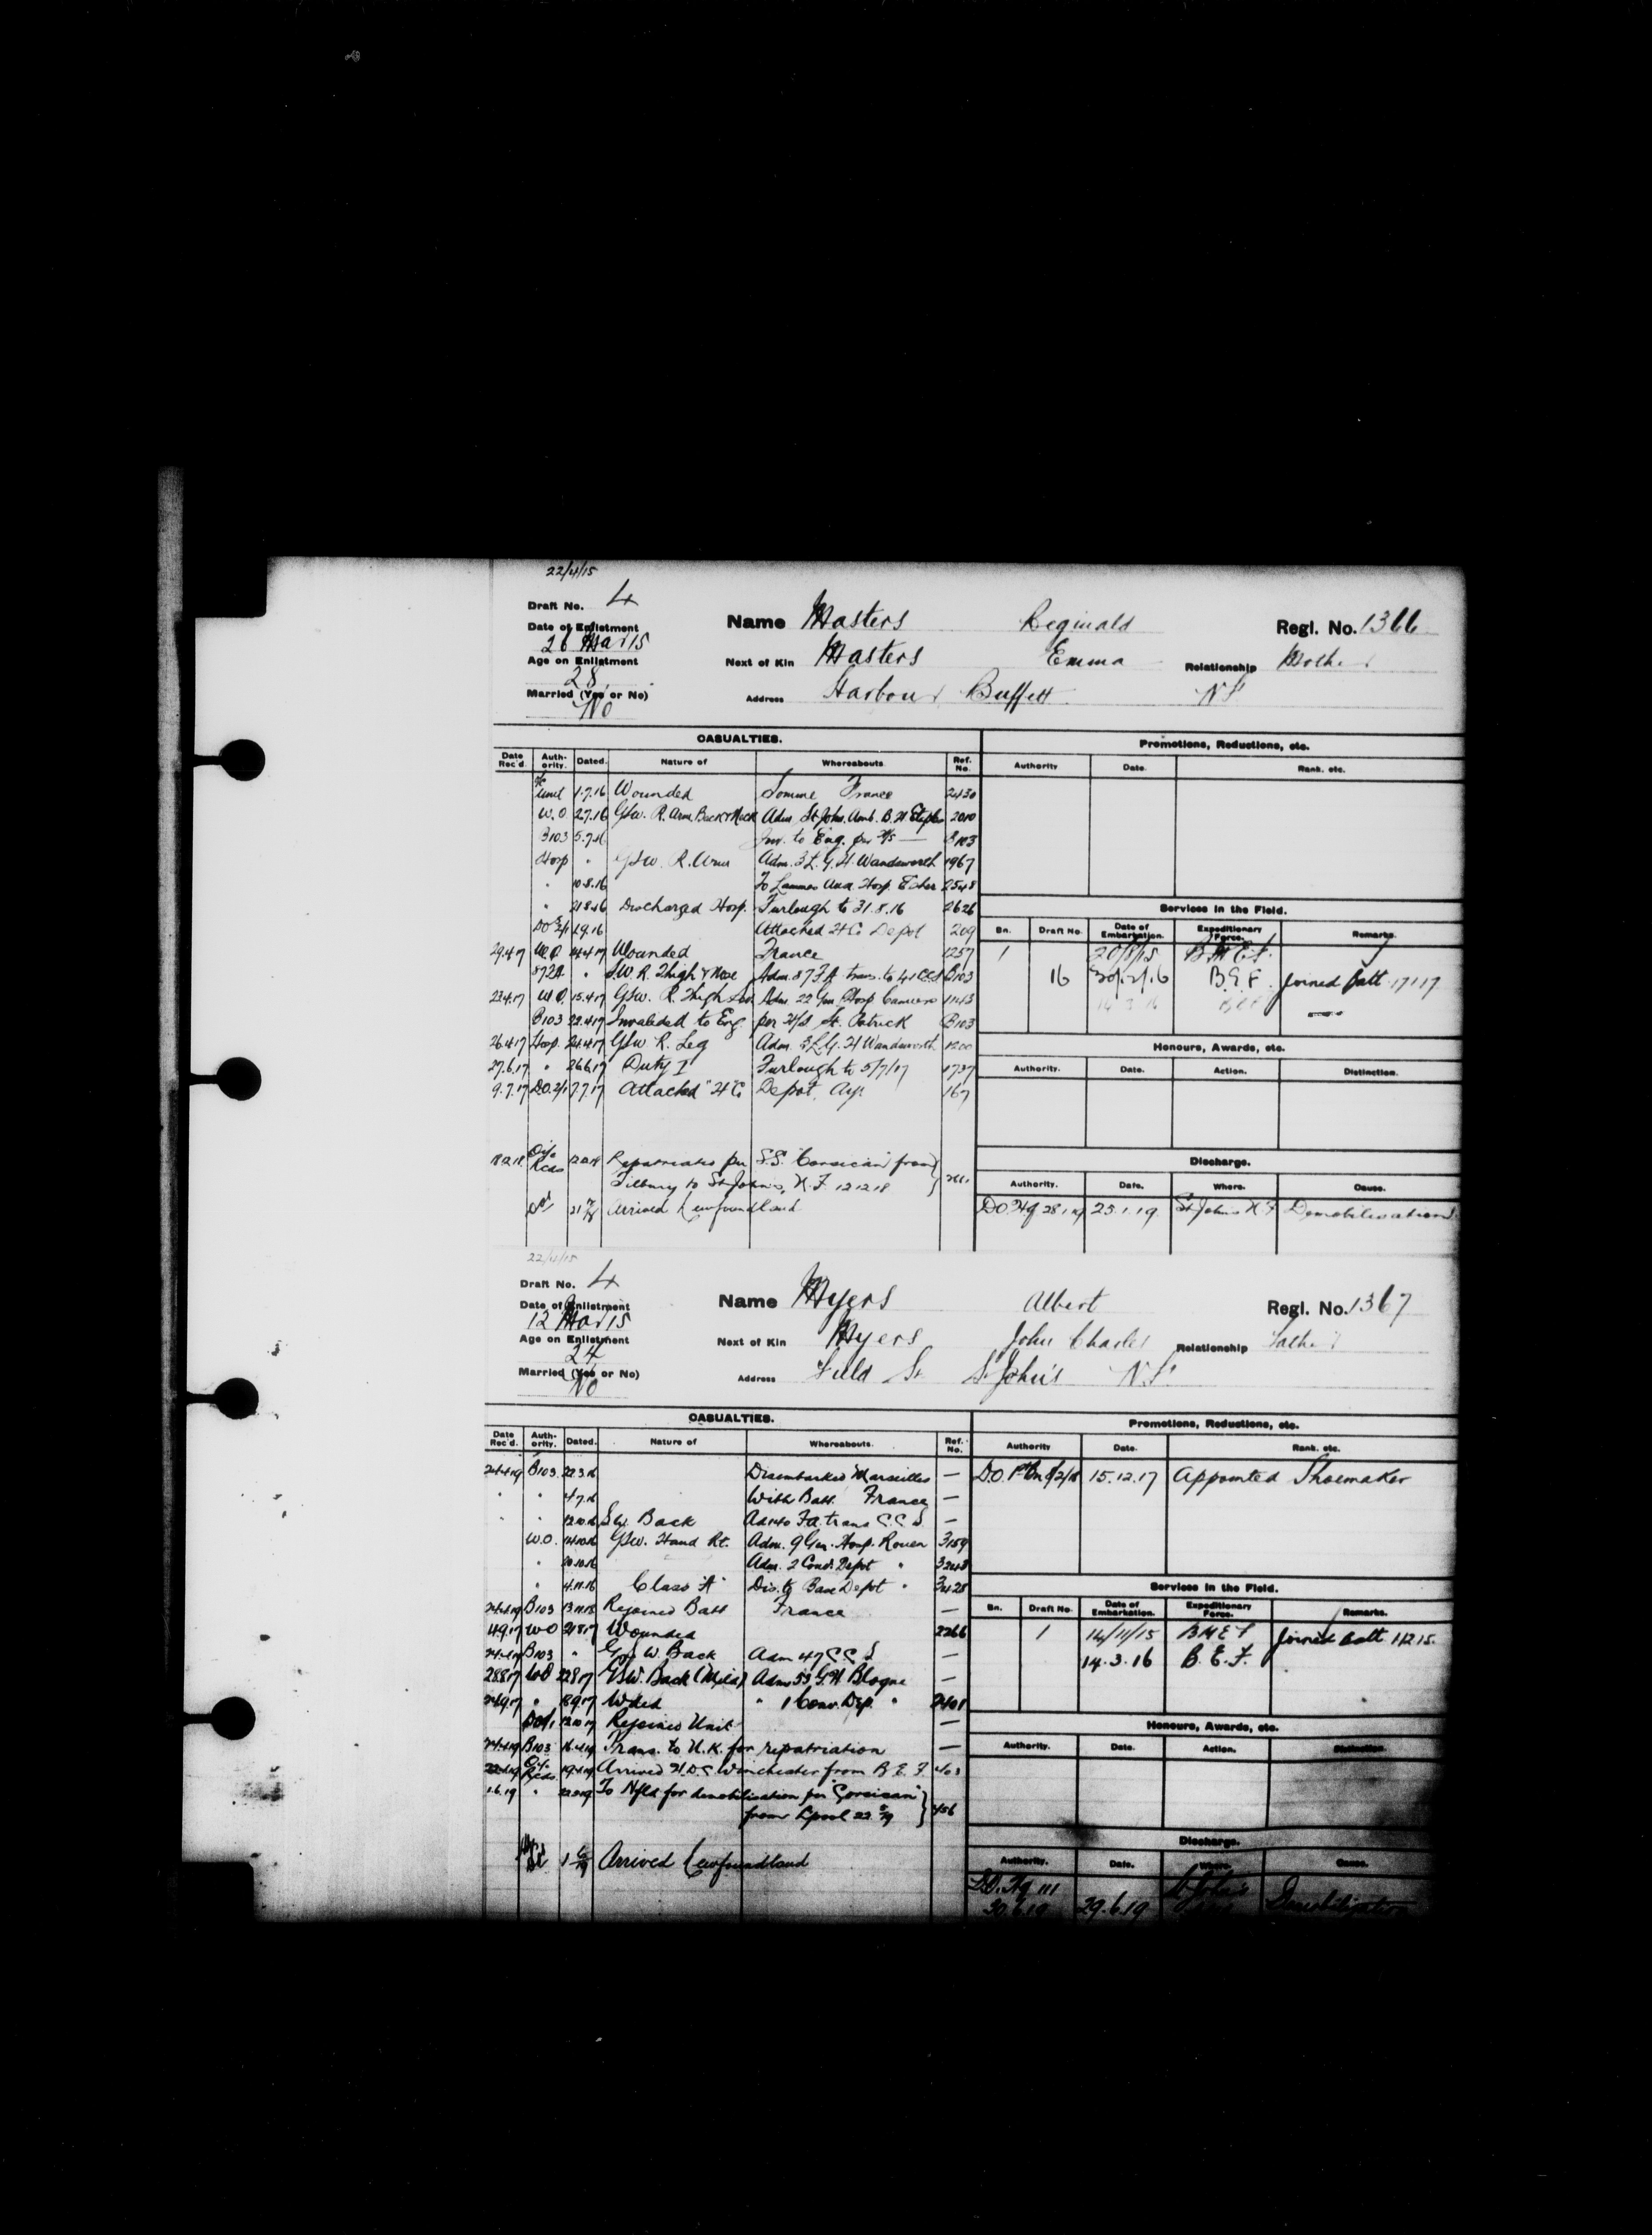 22/4/15
Draft No. 4
Name Masters Reginald Regl. No. 1366
Date of Enlistment
26 Mar 15
Next of Kin Masters Emma Relationship Mother
Age on Enlistment
28
Address Harbour Buffett N.F.
Married (Yes or No)
No
CASUALTIES.
Date Rec'd. Authority. Dated. Nature of Whereabouts. Ref. No.
1.7.16 Wounded Somme France 2430
W.O. 2.7.16 GSW. R. Arm Back & Neck Adm. St John Amb. B.H. Etaples 2010
B103 5.7.16 Inv. to Eng. per H/S — B103
Hosp " GSW. R. Arm Adm. 3 L.G.H. Wandsworth 1967
" 10.8.16 To Hosp. Esher 2548
" 21.8.16 Discharged Hosp. Furlough to 31.8.16 2626
1.9.16 Attached H Co Depot 209
29.4.17 W.O. 14.4.17 Wounded France 1257
87FA " S.W. R. Thigh & Nose Adm. 87 F.A. trans. to 41 C.C.S B103
23.4.17 W.O. 15.4.17 GSW. R. Thigh Adm 22 Gen. Hosp Camiers 1143
B103 22.4.17 Invalided to Eng per H/S St. Patrick B103
26.4.17 Hosp. 24.4.17 GSW R. Leg Adm. 3 L.G. H Wandsworth 1200
27.6.17 " 26.6.17 Duty I Furlough to 5/7/17 1737
9.7.17 D.O. 2/1 7.7.17 Attached "H" Co Depot, Ayr 167
Recds Repatriated per S.S. "Corsican" from
Tilbury to St John's, N.F. 12.12.18
Arrived Newfoundland
Promotions, Reductions, etc.
Authority Date. Rank. etc.
Services in the Field.
Bn. Draft No. Date of Embarkation. Expeditionary Force. Remarks.
1 20/8/15 B.M.E.F.
16 30/12/16 B.E.F. Joined Batt 17.1.17
14.3.16 B.E.F.
Honours, Awards, etc.
Authority. Date. Action. Distinction.
Discharge.
Authority. Date. Where. Cause.
D.O. Hq 28.1.19 23.1.19. St John's N.F. Demobilisation
22/4/15
Draft No. 4
Name Myers Albert Regl. No. 1367
Date of Enlistment
12 Mar 15
Next of Kin Myers John Charles Relationship Father
Age on Enlistment
24
Address Field St St John's N.F.
Married (Yes or No)
No
CASUALTIES.
Date Rec'd. Authority. Dated. Nature of Whereabouts. Ref. No.
24.4.19 B103 22.3.16 Disembarked Marseilles —
" " 4.7.16 With Batt. France —
" " 12.10.16 S.W. Back Ad 140 F.A. trans C.C.S. —
W.O. 14.10.16 GSW. Hand Rt. Adm. 9 Gen. Hosp. Rouen 3159
" 20.10.16 Adm. 2 Conv. Depot " 3243
" 4.11.16 Class "A" Dis. to Base Depot " 3425
24.4.19 B103 Rejoined Batt France —
4.9.17 W.O 21.8.17 Wounded 2266
24.4.19 B103 " G.S.W. Back Adm 47 C.C.S —
28.8.17 W.O 22.8.17 GSW. Back (Mild) Adm 53 G.H Blogne —
24.9.17 " 18.9.17 Wded " 1 Conv. Dep. " 2401
12.10.17 Rejoined Unit —
24.4.19 B103 16.4.19 Trans. to U.K. for repatriation —
22.4.19 Recds 19.4.19 Arrived H.D.C. Winchester from B.E.F. 403
1.6.19 " 22.5.19 To Nfld for demobilisation per "Corsican"
from Lpool 22.5/19 456
Arrived Newfoundland
Promotions, Reductions, etc.
Authority Date. Rank. etc.
15.12.17 Appointed Shoemaker
Services in the Field.
Bn. Draft No. Date of Embarkation. Expeditionary Force. Remarks.
1 14/11/15 B M E F Joined Batt 1.12.15.
14.3.16 B.E.F.
Honours, Awards, etc.
Authority. Date. Action. Distinction.
Discharge.
Authority. Date. Where. Cause.
D.O. Hq 111
30.6.19 29.6.19 St John's Demobilisation